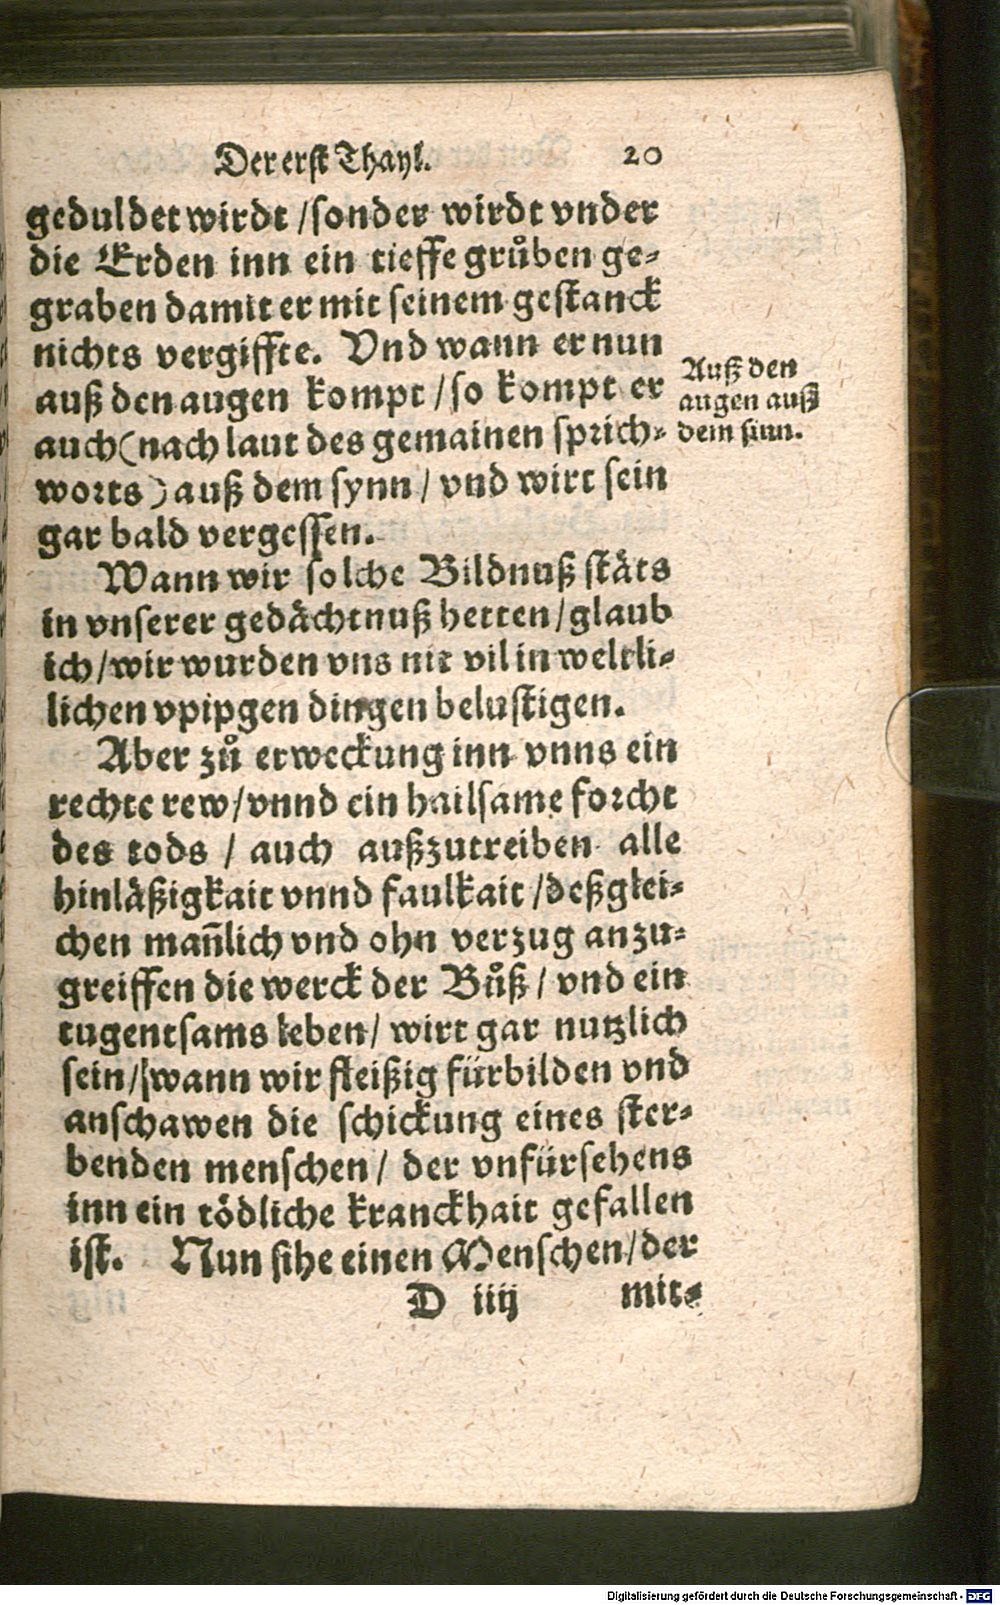 Der erst Thayl. 20
geduldet wirdt / sonder wirdt vnder
die Erden inn ein tieffe grůben ge-
graben damit er mit seinem gestanck
nichts vergiffte. Vnd wann er nun
auß den augen kompt / so kompt er
auch (nach laut des gemainen sprich-
worts) auß dem synn / vnd wirt sein
gar bald vergessen.
Auß den
augen auß
dem sinn.
Wann wir solche Bildnuß stäts
in vnserer gedächtnuß hetten / glaub
ich / wir wurden vns nit vil in weltli-
lichen vpipgen dingen belustigen.
Aber zů erweckung inn vnns ein
rechte rew / vnnd ein hailsame forcht
des tods / auch außzutreiben alle
hinläßigkait vnnd faulkait / deßglei-
chen mañlich vnd ohn verzug anzu-
greiffen die werck der Bůß / vnd ein
tugentsams leben / wirt gar nutzlich
sein / wann wir fleißig fürbilden vnd
anschawen die schickung eines ster-
benden menschen / der vnfürsehens
inn ein tödliche kranckhait gefallen
ist. Nun sihe einen Menschen / der
D iiij mit-
Digitalisierung gefördert durch die Deutsche Forschungsgemeinschaft - DFG